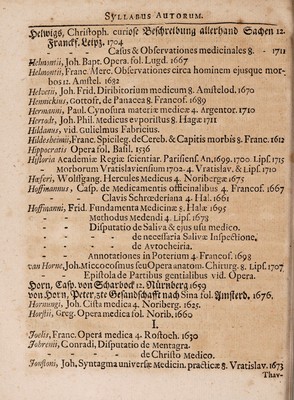 SYLLABUS AUTORUM.
Helwigs, Christoph. curiose Beschreibung allerhand Sachen 12.
Franckf. Leipz. 1704
— Casus & Observationes medicinales 8. 1711
Helmontii, Joh. Bapt. Opera. fol. Lugd. 1667
Helmontii, Franc. Merc. Observationes circa hominem ejusque mor-
bos 12. Amst. 1682
Helvetii, Joh. Frid. Diribitorium medicum 8. Amstelod. 1670
Hennickius, Gottofr. de Panacea 8. Francof. 1689
Hermanni, Paul. Cynosura materiæ medicæ 4. Argentor. 1710
Herrodt, Joh. Phil. Medicus euporistus 8. Hagæ 1711
Hildanus, vid. Gulielmus Fabricius.
Hildesheimii, Franc. Spicileg. de Cereb. & Capitis morbis 8. Franc. 1612
Hippocratis Opera fol. Basil. 1536
Historia Academiæ Regiæ scientiar. Parisiens. An. 1699. 1700. Lips. 1715
— Morborum Vratislaviensium 1702. 4. Vratislav. & Lips. 1710
Hœferi, Wolffgang. Hercules Medicus 4. Noribergæ 1675
Hoffmannus, Casp. de Medicamentis officinalibus 4. Francof. 1667
— Clavis Schrœderiana 4. Hal. 1661
Hoffmanni, Frid. Fundamenta Medicinæ 8. Halæ 1695
— Methodus Medendi 4. Lips. 1678
— Disputatio de Saliva & ejus usu medico.
— de necessaria Salivæ Inspectione.
— de Avtocheiria.
— Annotationes in Poterium 4. Francof. 1698
van Horne, Joh. Miccocosmus seu Opera anatom. Chirurg. 8. Lips. 1707
— Epistola de Partibus genitalibus vid. Opera.
Horn, Casp. von Scharbock 12. Nürnberg 1659
von Horn, Peter, 5te Gesandschafft nach Sina fol. Amsterd. 1676.
Hornungi, Joh. Cista medica 4. Noriberg. 1625.
Horstii, Greg. Opera medica fol. Norib. 1660
I.
Joelis, Franc. Opera medica 4. Rostoch. 1630
Johrenii, Conradi, Disputatio de Mentagra.
— de Christo Medico.
Jonstoni, Joh. Syntagma universæ Medicin. practicæ 8. Vratislav. 1673
Thav-